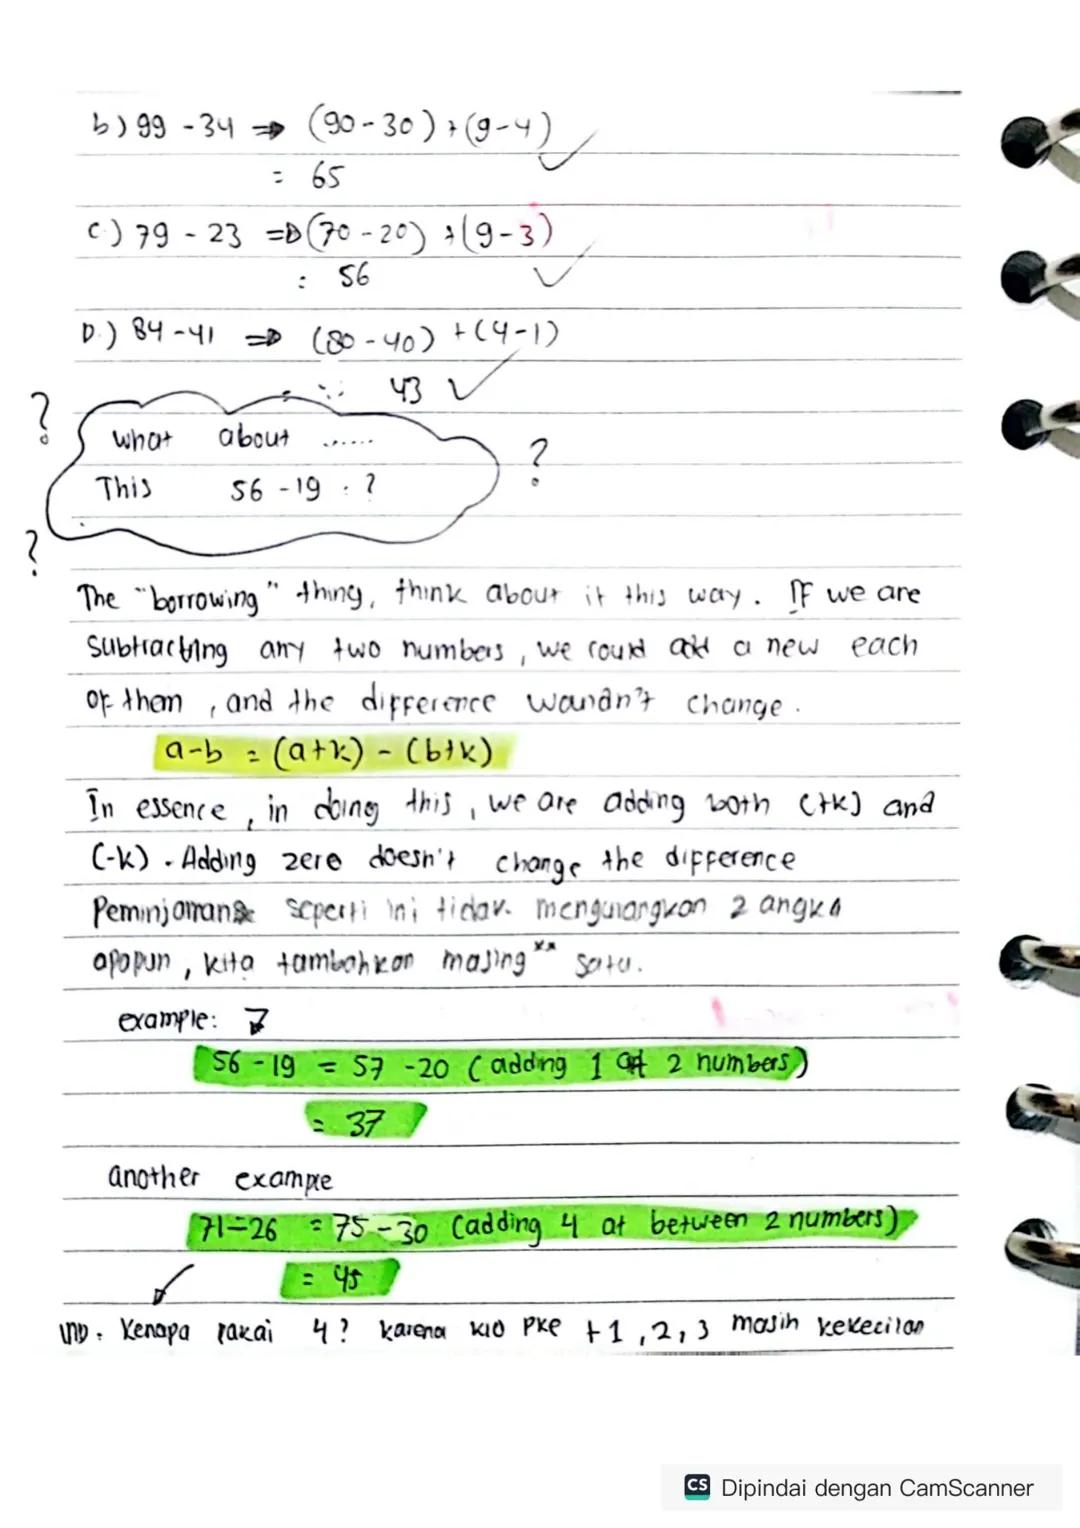 b) 99 - 34 ⇒ (90 - 30) + (9 - 4)
= 65
c.) 79 - 23 ⇒ (70 - 20) + (9 - 3)
: 56
D.) 84 - 41 ⇒ (80 - 40) + (4 - 1)
43
? What about ...... ?
This 56 - 19 : ?
?
The "borrowing" thing, think about it this way. IF we are
subtracting any two numbers, we could add a new each
of them, and the difference wouldn't change.
a-b = (a+k) - (b+k)
In essence, in doing this, we are adding both (+k) and
(-k). Adding zero doesn't change the difference
seperti ini tidak mengurangkan 2 angka
apapun, kita tambahkan masing xx satu.
example:
56 - 19 = 57 - 20 (adding 1 at 2 numbers)
= 37
another exampe
71 - 26 = 75 - 30 (adding 4 at between 2 numbers)
= 45
IND: Kenapa pakai 4? karena klo pke +1, 2, 3 masih kekecilan
CS Dipindai dengan CamScanner